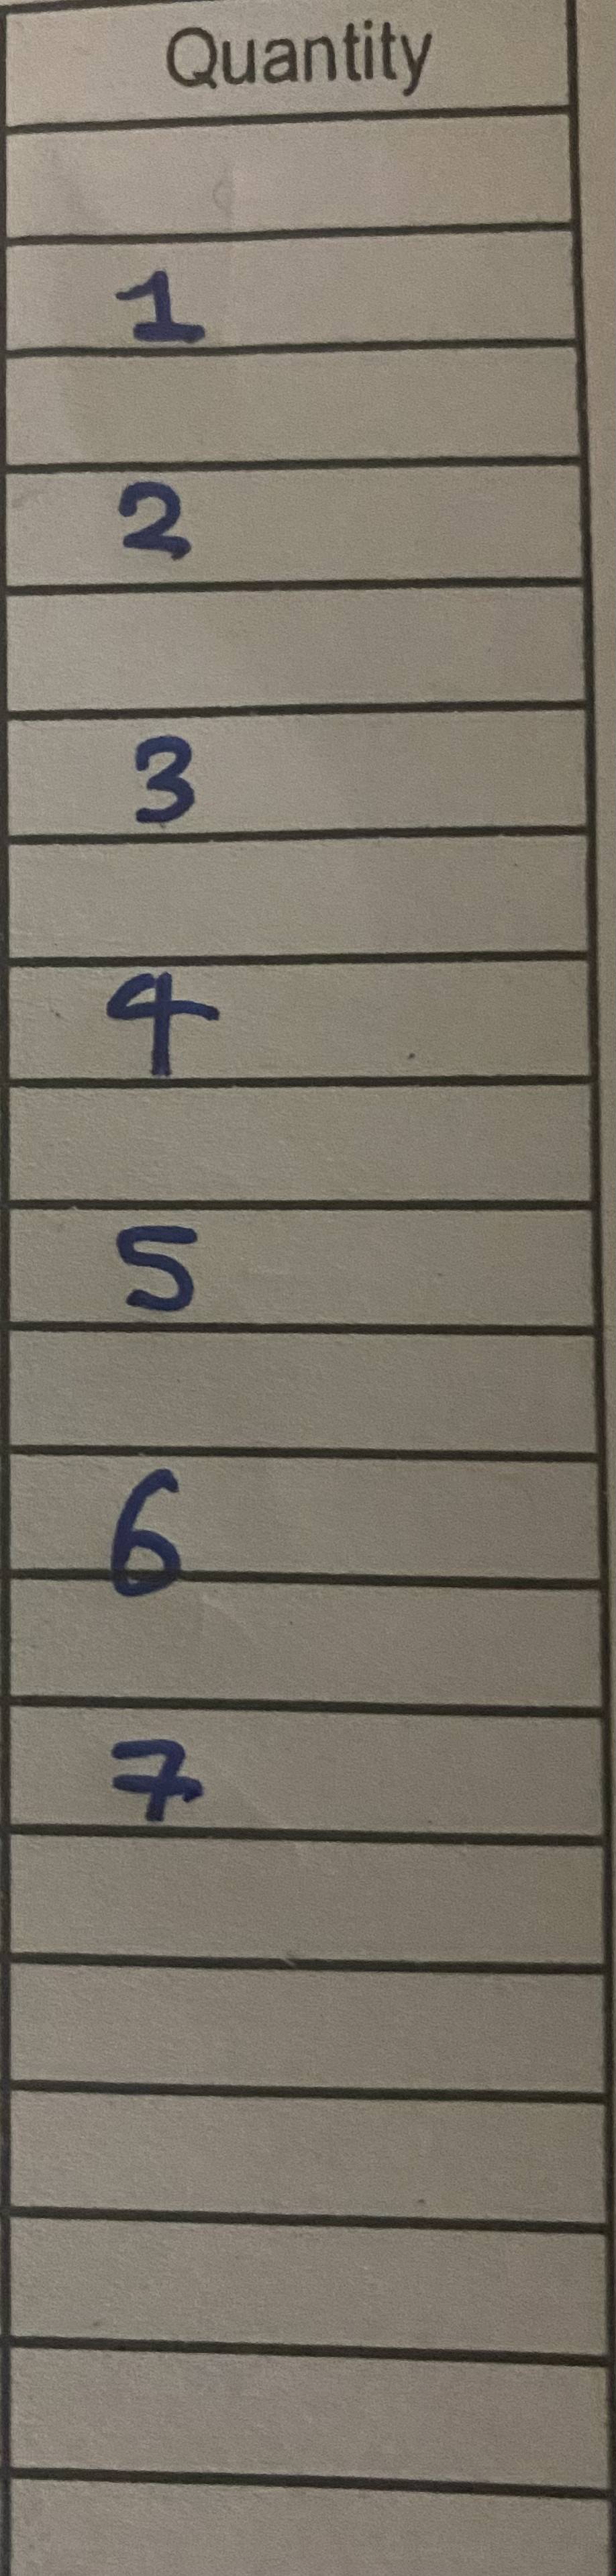 Quantity
1
2
3
4
5
6
7